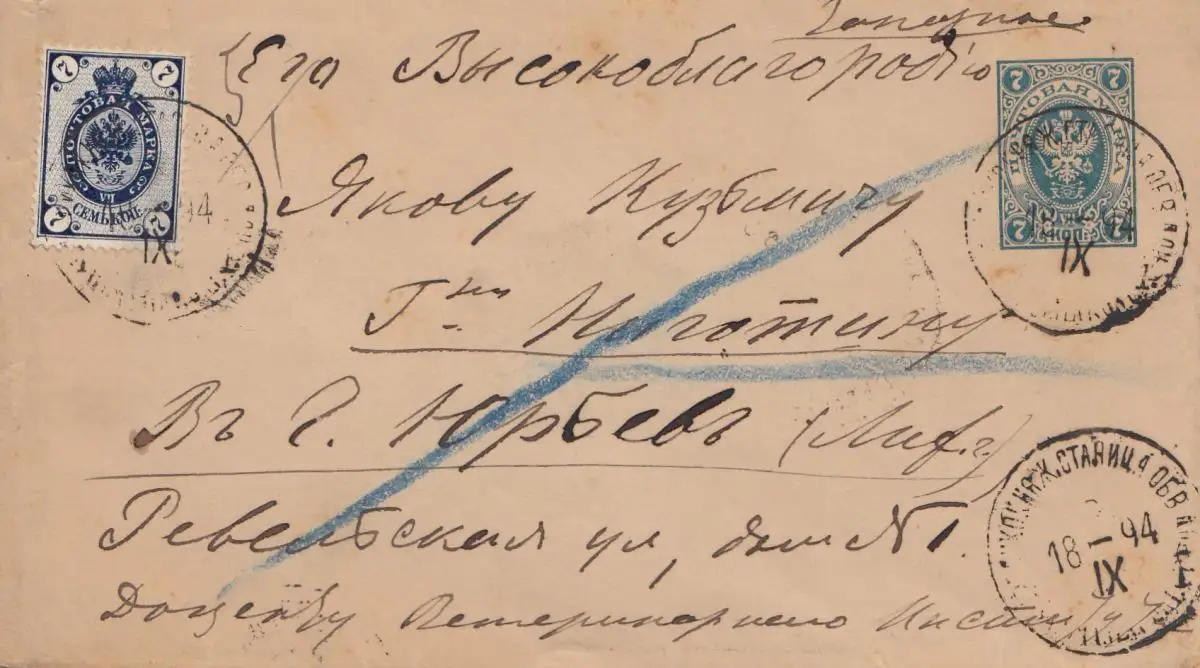 Заказное
Его Высокоблагородію
Якову Кузьмичу
Г-ну Неготину
Въ г. Юрьевъ (Лиф. г.)
Ревельская ул, дом №1.
Доценту Ветеринарного Инстит
7 7
ПОЧТОВАЯ МАРКА
СЕМЬ КОП.
7 7
7 7
ПОЧТОВАЯ МАРКА
7 КОП. 7
94
IX
18 94
IX
СТАНИЦА ОБВ
18 – 94
IX